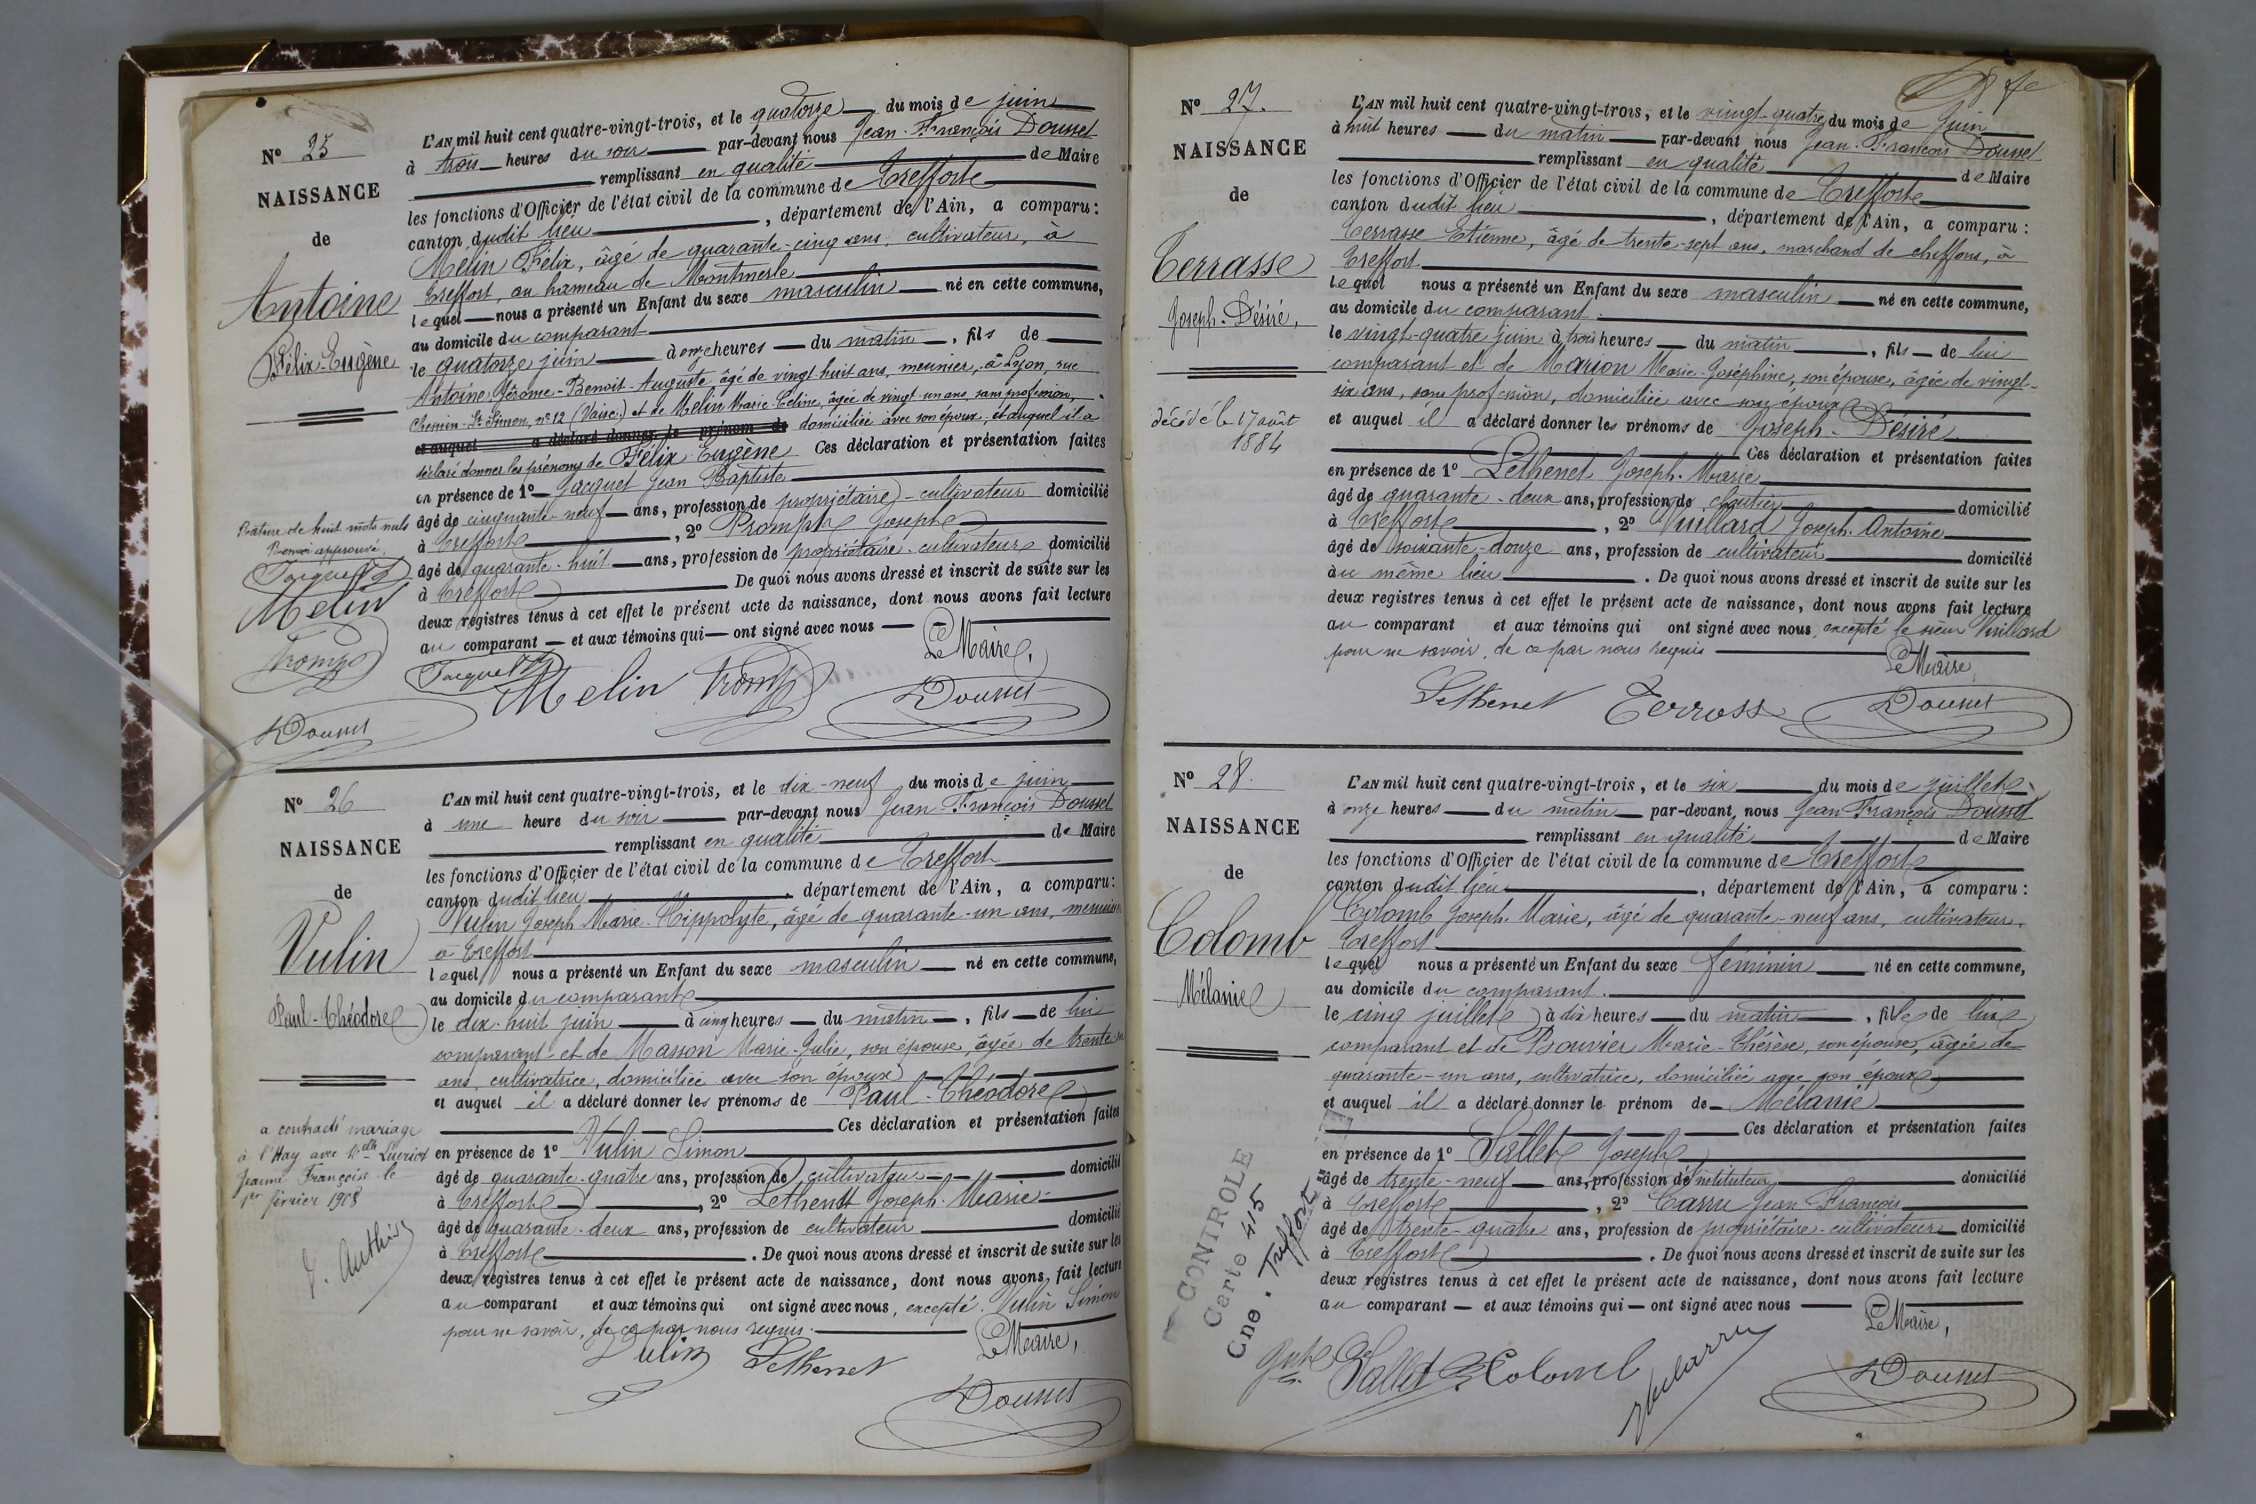 N° 25
NAISSANCE
de
Antoine
Félix-Eugène
Rature de huit mots nuls
Renvoi approuvé.
Jacquet
Melin
Promp
Dousset
L'AN mil huit cent quatre-vingt-trois, et le quatorze du mois de juin
à trois heures du soir par-devant nous Jean-François Dousset
remplissant en qualité de Maire
les fonctions d'Officier de l'état civil de la commune de Treffort
canton dudit lieu, département de l'Ain, a comparu:
Melin Félix, âgé de quarante-cinq ans, cultivateur, à
Treffort, au hameau de Montmerle
lequel nous a présenté un Enfant du sexe masculin né en cette commune,
au domicile du comparant
le quatorze juin à onze heures du matin, fils de
Antoine Jérome-Benoit-Auguste, âgé de vingt-huit ans, meunier, à Lyon, rue
Chemin-St Simon, n° 12 (Vaise) et de Melin Marie-Céline, âgée de vingt-un ans, sans profession,
et auquel a déclaré donner le prénom de domiciliée avec son époux, et auquel il a
déclaré donner les prénoms de Félix-Eugène Ces déclaration et présentation faites
en présence de 1° Jacquet Jean Baptiste
âgé de cinquante-neuf ans, profession de propriétaire-cultivateur domicilié
à Treffort, 2° Promp Joseph
âgé de quarante-huit ans, profession de propriétaire-cultivateur domicilié
à Treffort De quoi nous avons dressé et inscrit de suite sur les
deux registres tenus à cet effet le présent acte de naissance, dont nous avons fait lecture
au comparant et aux témoins qui ont signé avec nous
Le Maire,
Jacquet Melin Promp Dousset
N° 26
NAISSANCE
de
Vulin
Paul-Théodore
a contracté mariage
à l'Hay avec
Jeanne Françoise le
1er février 1908
L'AN mil huit cent quatre-vingt-trois, et le dix-neuf du mois de juin
à une heure du soir par-devant nous Jean-François Dousset
remplissant en qualité de Maire
les fonctions d'Officier de l'état civil de la commune de Treffort
canton dudit lieu, département de l'Ain, a comparu:
Vulin Joseph Marie-Hippolyte, âgé de quarante-un ans, menuisier
à Treffort
lequel nous a présenté un Enfant du sexe masculin né en cette commune,
au domicile du comparant
le dix-huit juin à cinq heures du matin, fils de lui
comparant et de Masson Marie-Julie, son épouse, âgée de trente
ans, cultivatrice, domiciliée avec son époux
et auquel il a déclaré donner les prénoms de Paul-Théodore
Ces déclaration et présentation faites
en présence de 1° Vulin Simon
âgé de quarante-quatre ans, profession de cultivateur domicilié
à Treffort, 2° Lethenet Joseph-Marie
âgé de quarante-deux ans, profession de cultivateur domicilié
à Treffort. De quoi nous avons dressé et inscrit de suite sur les
deux registres tenus à cet effet le présent acte de naissance, dont nous avons fait lecture
au comparant et aux témoins qui ont signé avec nous, excepté Vulin Simon
pour ne savoir, de ce par nous requis.
Le Maire,
Vulin Lethenet
Dousset
N° 27.
NAISSANCE
de
Terrasse
Joseph-Désiré,
décédé le 17 août
1884
L'AN mil huit cent quatre-vingt-trois, et le vingt-quatre du mois de Juin
à huit heures du matin par-devant nous Jean-François Dousset
remplissant en qualité de Maire
les fonctions d'Officier de l'état civil de la commune de Treffort
canton dudit lieu, département de l'Ain, a comparu:
Terrasse Etienne, âgé de trente-sept ans, marchand de chiffons, à
Treffort
lequel nous a présenté un Enfant du sexe masculin né en cette commune,
au domicile du comparant.
le vingt-quatre juin à trois heures du matin, fils de lui
comparant et de Marion Marie-Joséphine, son épouse, âgée de vingt-
six ans, sans profession, domiciliée avec son époux
et auquel il a déclaré donner les prénoms de Joseph-Désiré
Ces déclaration et présentation faites
en présence de 1° Lethenet Joseph-Marie
âgé de quarante-deux ans, profession de domicilié
à Treffort, 2° Vuillard Joseph-Antoine
âgé de soixante-douze ans, profession de cultivateur domicilié
au même lieu. De quoi nous avons dressé et inscrit de suite sur les
deux registres tenus à cet effet le présent acte de naissance, dont nous avons fait lecture
au comparant et aux témoins qui ont signé avec nous, excepté le sieur Vuillard
pour ne savoir, de ce par nous requis
Le Maire,
Lethenet Terrasse Dousset
N° 28.
NAISSANCE
de
Colomb
Mélanie
CONTROLE
Carte 415
Cne. Treffort
L'AN mil huit cent quatre-vingt-trois, et le six du mois de juillet
à onze heures du matin par-devant nous Jean-François Dousset
remplissant en qualité de Maire
les fonctions d'Officier de l'état civil de la commune de Treffort
canton dudit lieu, département de l'Ain, a comparu:
Colomb Joseph-Marie, âgé de quarante-neuf ans, cultivateur,
Treffort
lequel nous a présenté un Enfant du sexe féminin né en cette commune,
au domicile du comparant.
le cinq juillet à dix heures du matin, fille de lui
comparant et de Bouvier Marie-Thérèse, son épouse, âgée de
quarante-un ans, cultivatrice, domiciliée avec son époux
et auquel il a déclaré donner le prénom de Mélanie
Ces déclaration et présentation faites
en présence de 1° Sallet Joseph
âgé de trente-neuf ans, profession d'instituteur domicilié
à Treffort, 2° Carru Jean François
âgé de trente-quatre ans, profession de propriétaire-cultivateur domicilié
à Treffort. De quoi nous avons dressé et inscrit de suite sur les
deux registres tenus à cet effet le présent acte de naissance, dont nous avons fait lecture
au comparant et aux témoins qui ont signé avec nous
Le Maire,
Sallet Colomb Carru Dousset